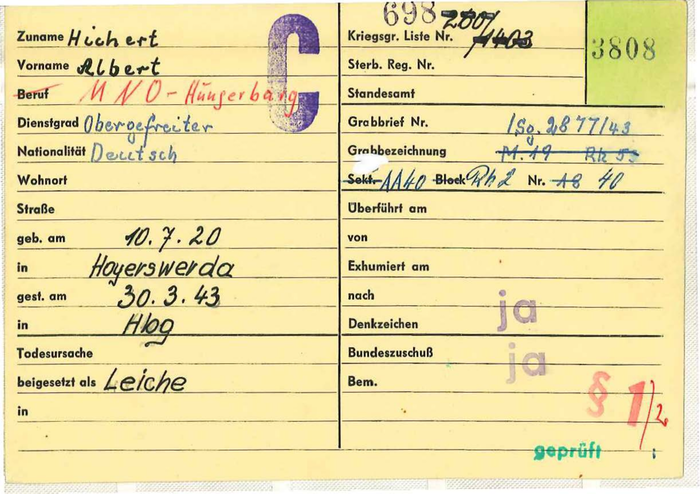 698 2001
Zuname Hichert
Kriegsgr. Liste Nr. 1403
3808
C
Vorname Albert
Sterb. Reg. Nr.
Beruf MNO-Hungerbarg
Standesamt
Dienstgrad Obergefreiter
Grabbrief Nr. ISg. 2877/43
Nationalität Deutsch
Grabbezeichnung M. 19 Rh 55
Wohnort
Sekt. AA40 Block Rh. 2 Nr. 40
Straße
Überführt am
geb. am 10.7.20
von
in Hoyerswerda
Exhumiert am
gest. am 30.3.43
nach
in Hbg
Denkzeichen ja
Todesursache
Bundeszuschuß ja
beigesetzt als Leiche
Bem.
§ 1/2
in
geprüft